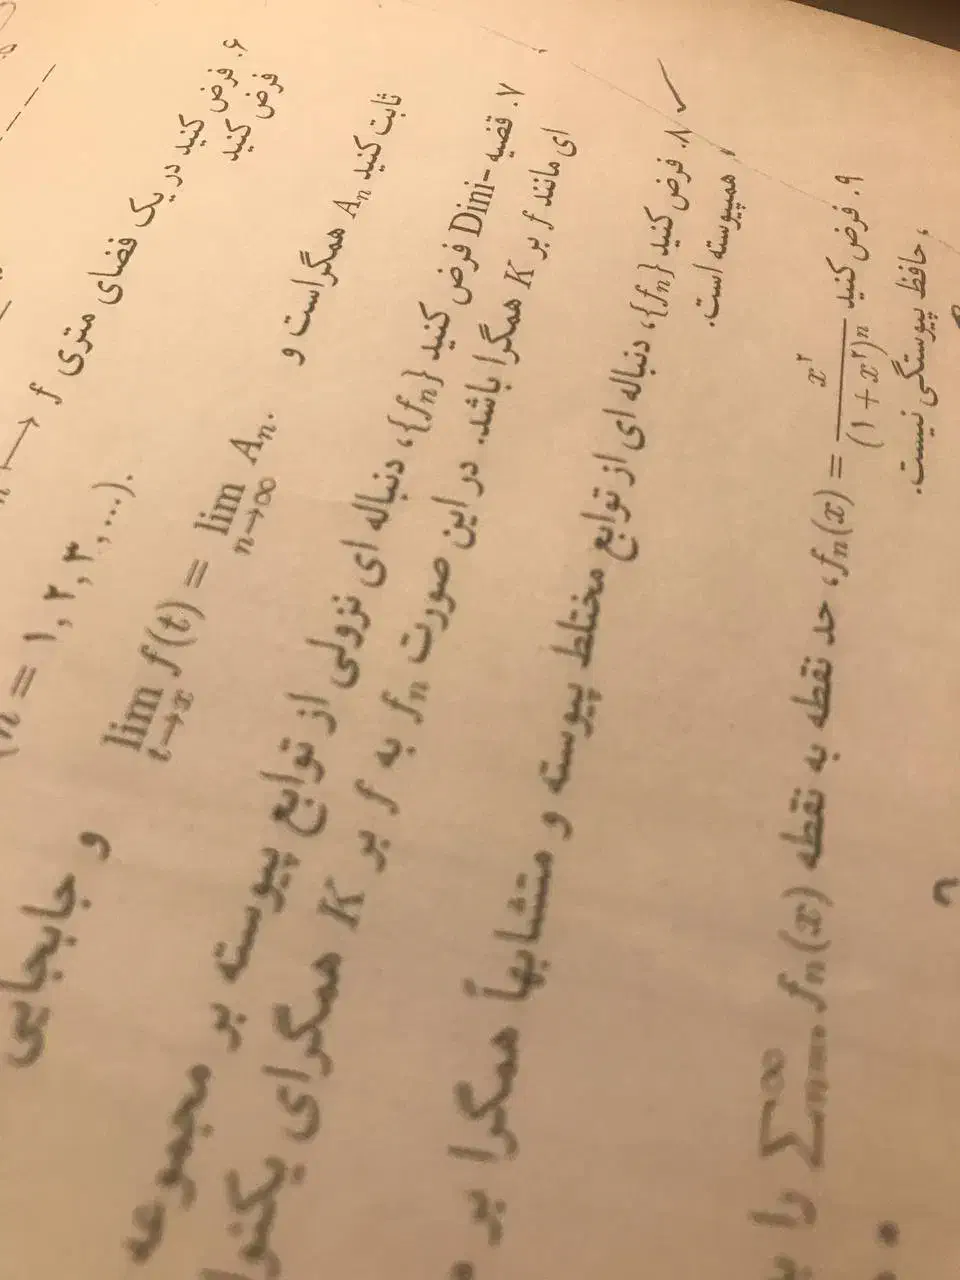 ۶. فرض کنید در یک فضای متری
فرض کنید → f
(n = ۱, ۲, ۳, ...).
ثابت کنید Aₙ همگراست و
lim_{t→x} f(t) = lim_{n→∞} Aₙ.
و جابجایی
۷. قضیه Dini- فرض کنید {fₙ}، دنباله ای نزولی از توابع پیوسته بر مجموعه
ای مانند f بر K همگرا باشد. در این صورت fₙ به f بر K همگرای یکنوا
۸. فرض کنید {fₙ}، دنباله ای از توابع مختلط پیوسته و متشابهاً همگرا بر
همپیوسته است.
۹. فرض کنید fₙ(x) = x^۲/(۱ + x^۲)^n، حد نقطه به نقطه ∑^∞ fₙ(x) را
، حافظ پیوستگی نیست.